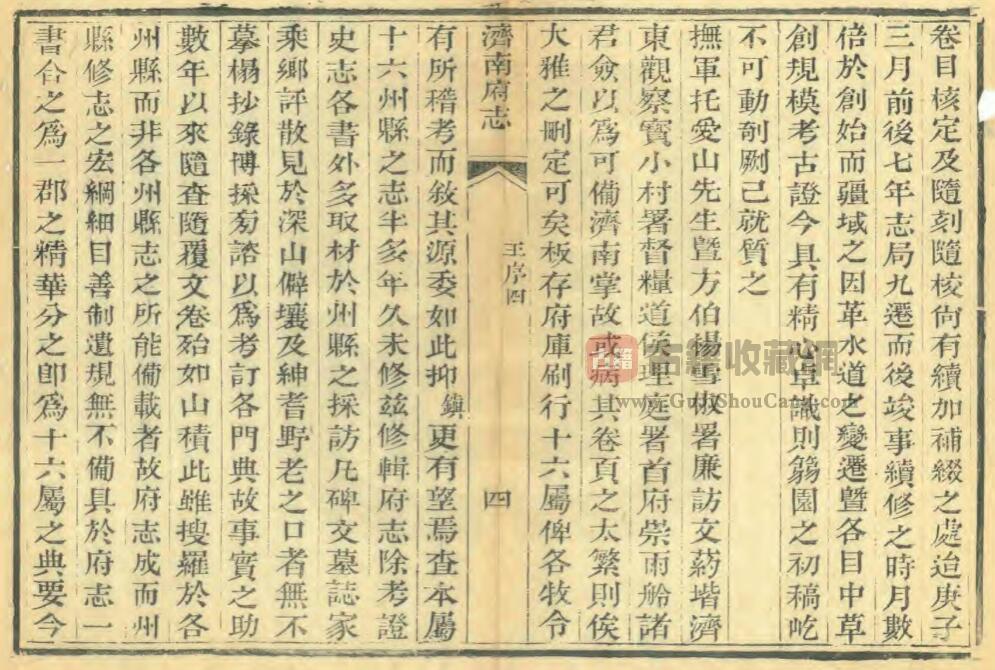 卷目核定及隨刻隨校尙有續加補綴之處迨庚子
三月前後七年志局九遷而後竣事續修之時月數
倍於創始而疆域之因革水道之變遷曁各目中草
創規模考古證今具有精心卓識則篛園之初稿屹
不可動剞劂已就質之
撫軍托愛山先生曁方伯楊雪椒署廉訪文葯堦濟
東觀察寳小村署督糧道侯理庭署首府崇雨舲諸
君僉以爲可備濟南掌故或病其卷頁之太繁則俟
大雅之刪定可矣板存府庫刷行十六屬俾各牧令
濟南府志
王序四
四
有所稽考而敘其源委如此抑鎮更有望焉查本屬
十六州縣之志半多年久未修茲修輯府志除考證
史志各書外多取材於州縣之採訪凡碑文墓誌家
乘鄉評散見於深山僻壤及紳耆野老之口者無不
摹榻抄錄博採旁諮以爲考訂各門典故事實之助
數年以來隨查隨覆文卷殆如山積此雖搜羅於各
州縣而非各州縣志之所能備載者故府志成而州
縣修志之宏綱細目善制遺規無不備具於府志一
書合之爲一郡之精華分之卽爲十六屬之典要今
古籍
古籍收藏網
www.GujiShouCang.com